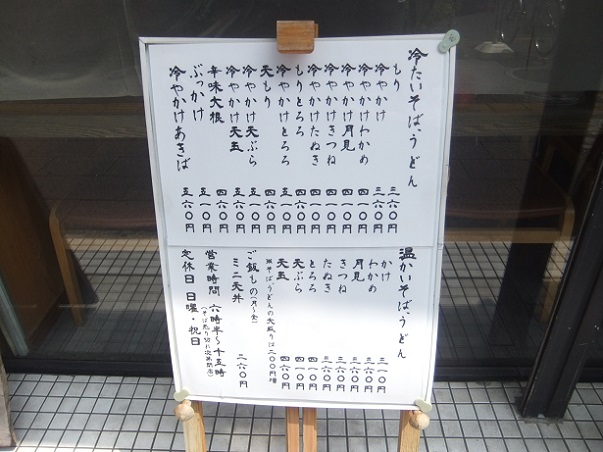 冷たいそば、うどん
もり 三六〇円
冷やかけ 三六〇円
冷やかけわかめ 四一〇円
冷やかけ月見 四一〇円
冷やかけきつね 四一〇円
冷やかけたぬき 四一〇円
もりとろろ 四六〇円
冷やかけとろろ 五一〇円
天もり 四六〇円
冷やかけ天ぷら 五一〇円
冷やかけ天玉 五六〇円
辛味大根 五一〇円
ぶっかけ 五一〇円
冷やかけあきば 五六〇円
温かいそば、うどん
かけ 三一〇円
わかめ 三六〇円
月見 三六〇円
きつね 三六〇円
たぬき 三六〇円
とろろ 四一〇円
天ぷら 四一〇円
天玉 四六〇円
※そば、うどんの大盛りは一〇〇円増
ご飯もの(月〜金)
ミニ天丼 二六〇円
営業時間 六時半〜十五時
(そば売り切れ次第閉店)
定休日 日曜・祝日